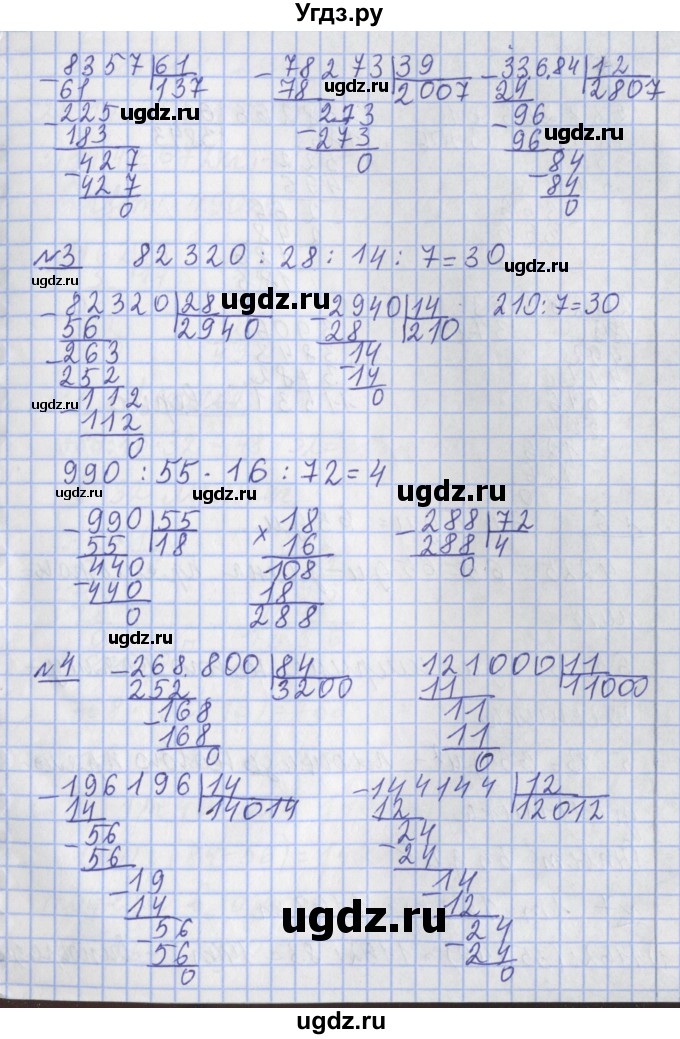 Угдз.ру
8357 | 61   78273 | 39   33684 | 12
61 | 137   78 | 2007   24 | 2807
ugdz.ru
225   273   96
183   273   96
ugdz.ru
427   0   84
427   84
0   0
ugdz.ru
№3 82320 : 28 : 14 : 7 = 30
ugdz.ru ugdz.ru
82320 | 28   2940 | 14   210 : 7 = 30
ugdz.ru
56 | 2940   28 | 210
263   14
252   14
ugdz.ru
112   0
112
0
990 : 55 · 16 : 72 = 4
ugdz.ru ugdz.ru ugdz.ru
990 | 55   × 18   288 | 72
55 | 18   16   288 | 4
440   108   0
440   18
0   288
ugdz.ru ugdz.ru
№4 268800 | 84   121000 | 11
252 | 3200   11 | 11000
168   11
168   11
0   0
ugdz.ru
196196 | 14   144144 | 12
14 | 14014   12 | 12012
56   24
56   24
19   14
14   12
ugdz.ru
56   24
56   24
0   0
ugdz.ru
ugdz.ru